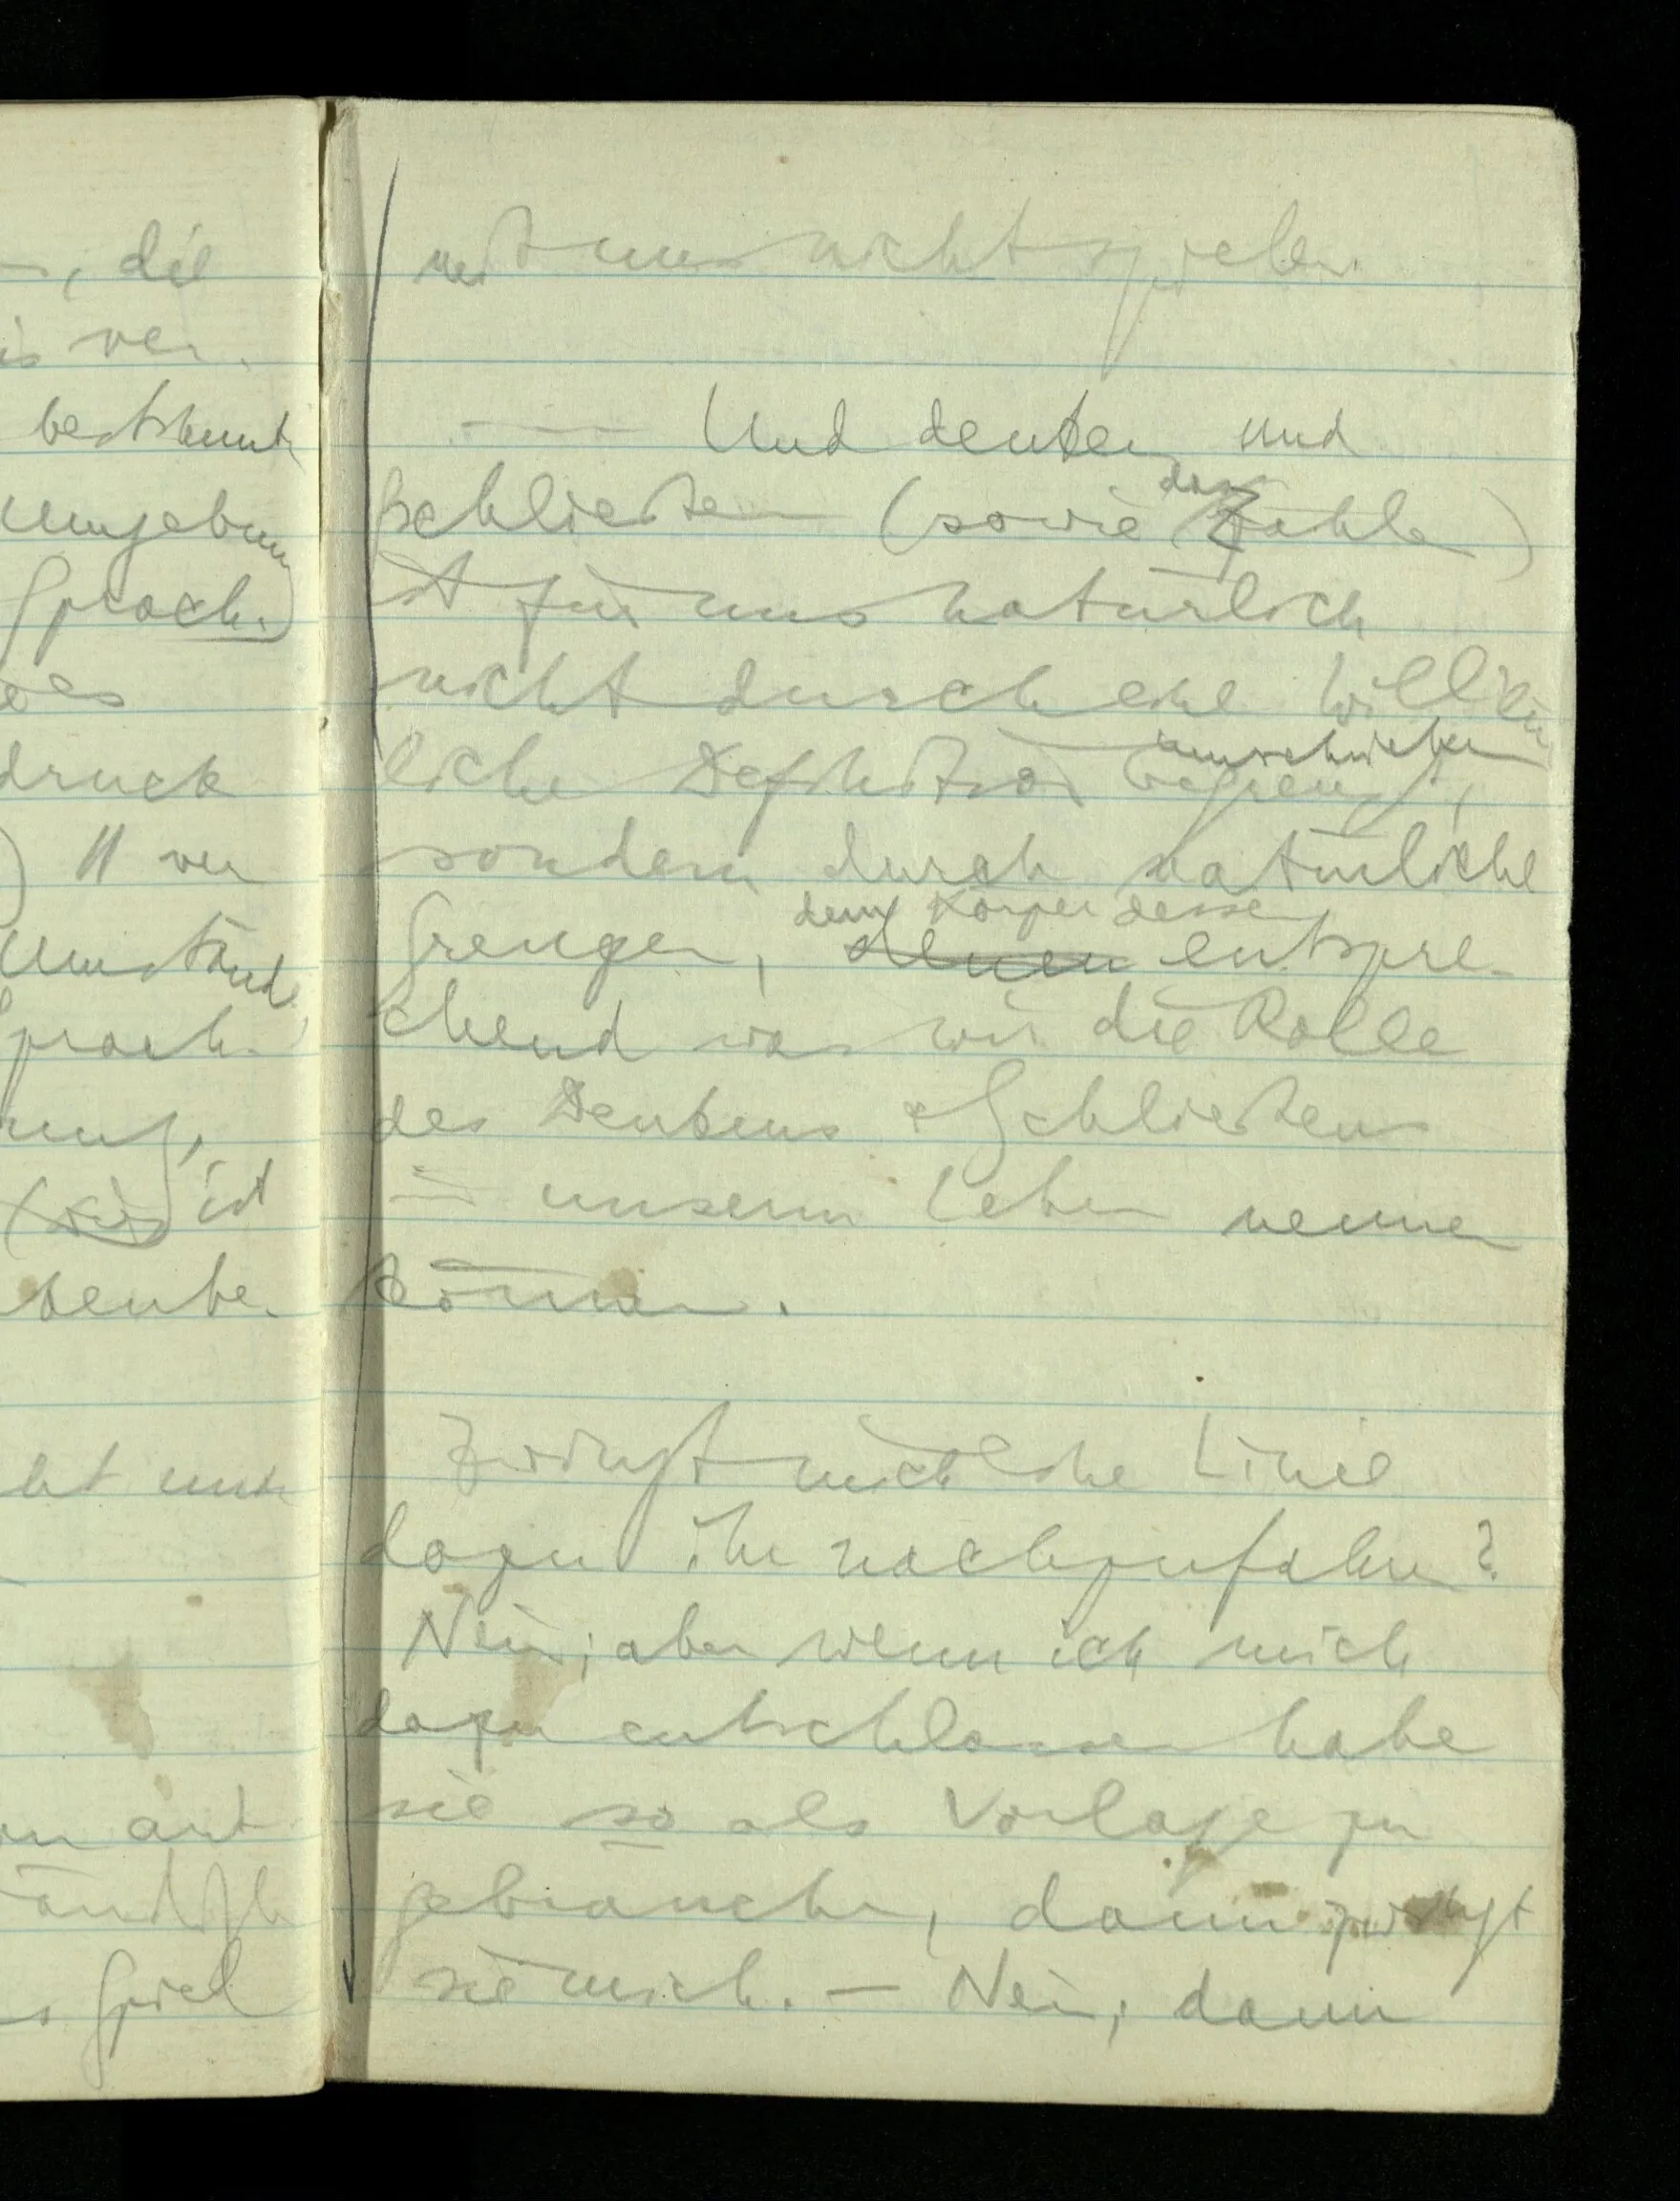 , die
is ver-
bestimmte
Umgebung
Sprach-
es
druck
) // ver
Umstände
Sprach-
ung,
ist
denke-
ht uns
ant
ständlich
s Spiel
mit uns nicht spielen.
— — Und denken und
das
schließen (sowie Zählen)
ist für uns natürlich
nicht durch eine willkür
umschrieben
liche Definition begrenzt,
sondern durch natürliche
dem Körper dessen
Grenzen, denen entspre-
chend was wir die Rolle
des Denkens & Schließens
in unserm Leben nennen
können.
Zwingt mich eine Linie
dazu ihr nachzufahren?
Nein; aber wenn ich mich
dazu entschlossen habe
sie so als Vorlage zu
gebrauchen, dann zwingt
sie mich. — Nein; dann